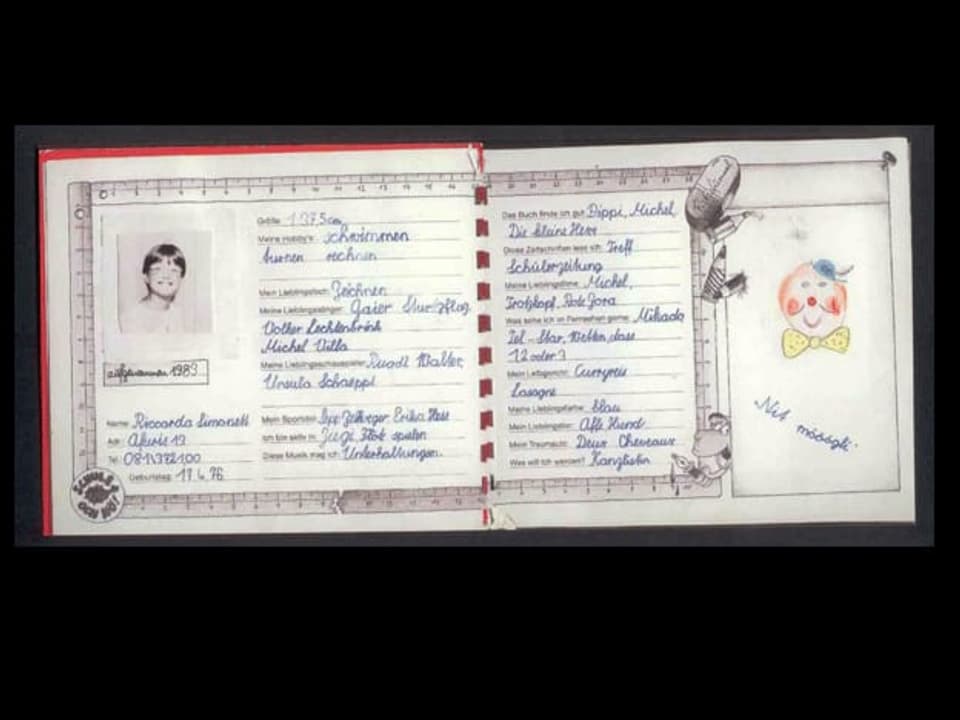 aufgenommen 1983
Name: Riccarda Simonett
Adr.: Afuris 19
Tel. 081/372100
Geburtstag: 17.4.76
SCHULE OCH NÖ!
Grösse: 137,5cm
Meine Hobby's: schwimmen
turnen rechnen
Mein Lieblingsfach: Zeichnen
Meine Lieblingssänger: Gaier Sturzflug
Volker Lechtenbrink
Michel Villa
Meine Lieblingsschauspieler: Ruodi Walter,
Ursula Schaeppi
Mein Sportidol: Sepp Zellweger Erika Hess
Ich bin aktiv in: Jugi, Flöte spielen
Diese Musik mag ich: Unterhaltungen.
Das Buch finde ich gut: Pippi, Michel,
Die kleine Hexe
Diese Zeitschriften lese ich: Treff
Schülerzeitung
Meine Lieblingsfilme: Michel,
Trotzkopf, Rote Zora
Was sehe ich im Fernsehen gerne: Mikado
Tel-Star, Wetten, dass
1, 2 oder 3
Mein Leibgericht: Curryreis
Lasagne
Meine Lieblingsfarbe: blau
Mein Lieblingstier: Affe Hund
Mein Traumauto: Deux Cheveaux
Was will ich werden?: Kanzlistin
Nit
möögli